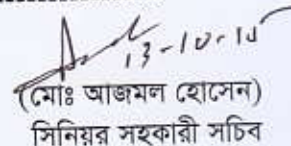 13-10-10
(মোঃ আজমল হোসেন)
সিনিয়র সহকারী সচিব